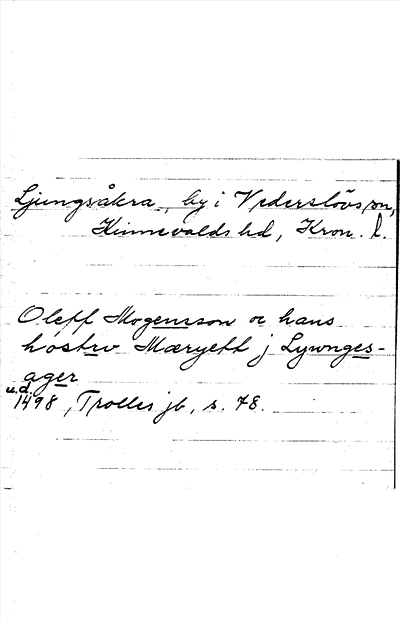 Ljungsåkra, by i Vederslövs sn,
Kinnevalds hd, Kron. l.
Oleff Mogensson oc hans
hostrv Mæryett j Lywnges-
ager
u.d.
1498, Trolles jb, s. 78.